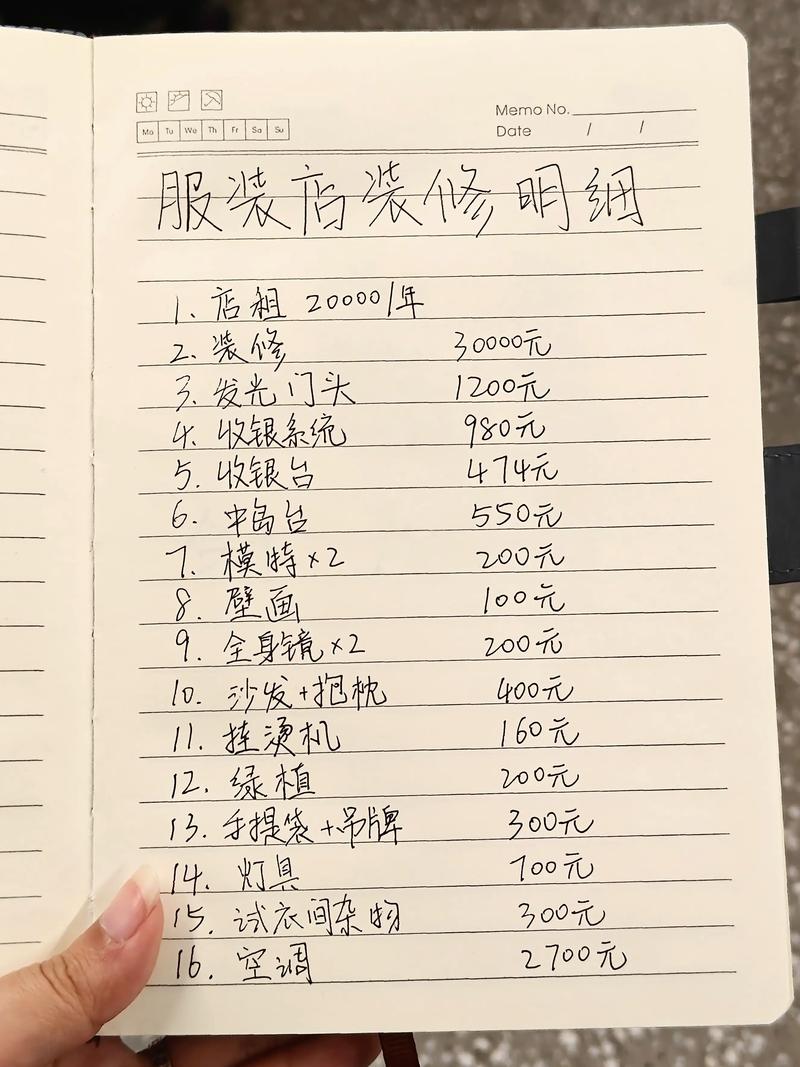 Memo No.
Mo Tu We Th Fr Sa Su
Date / /
服装店装修明细
1. 店租 20000/年
2. 装修 30000元
3. 发光门头 1200元
4. 收银系统 980元
5. 收银台 474元
6. 中岛台 550元
7. 模特×2 200元
8. 壁画 100元
9. 全身镜×2 200元
10. 沙发+抱枕 400元
11. 挂烫机 160元
12. 绿植 200元
13. 手提袋+吊牌 300元
14. 灯具 700元
15. 试衣间杂物 300元
16. 空调 2700元